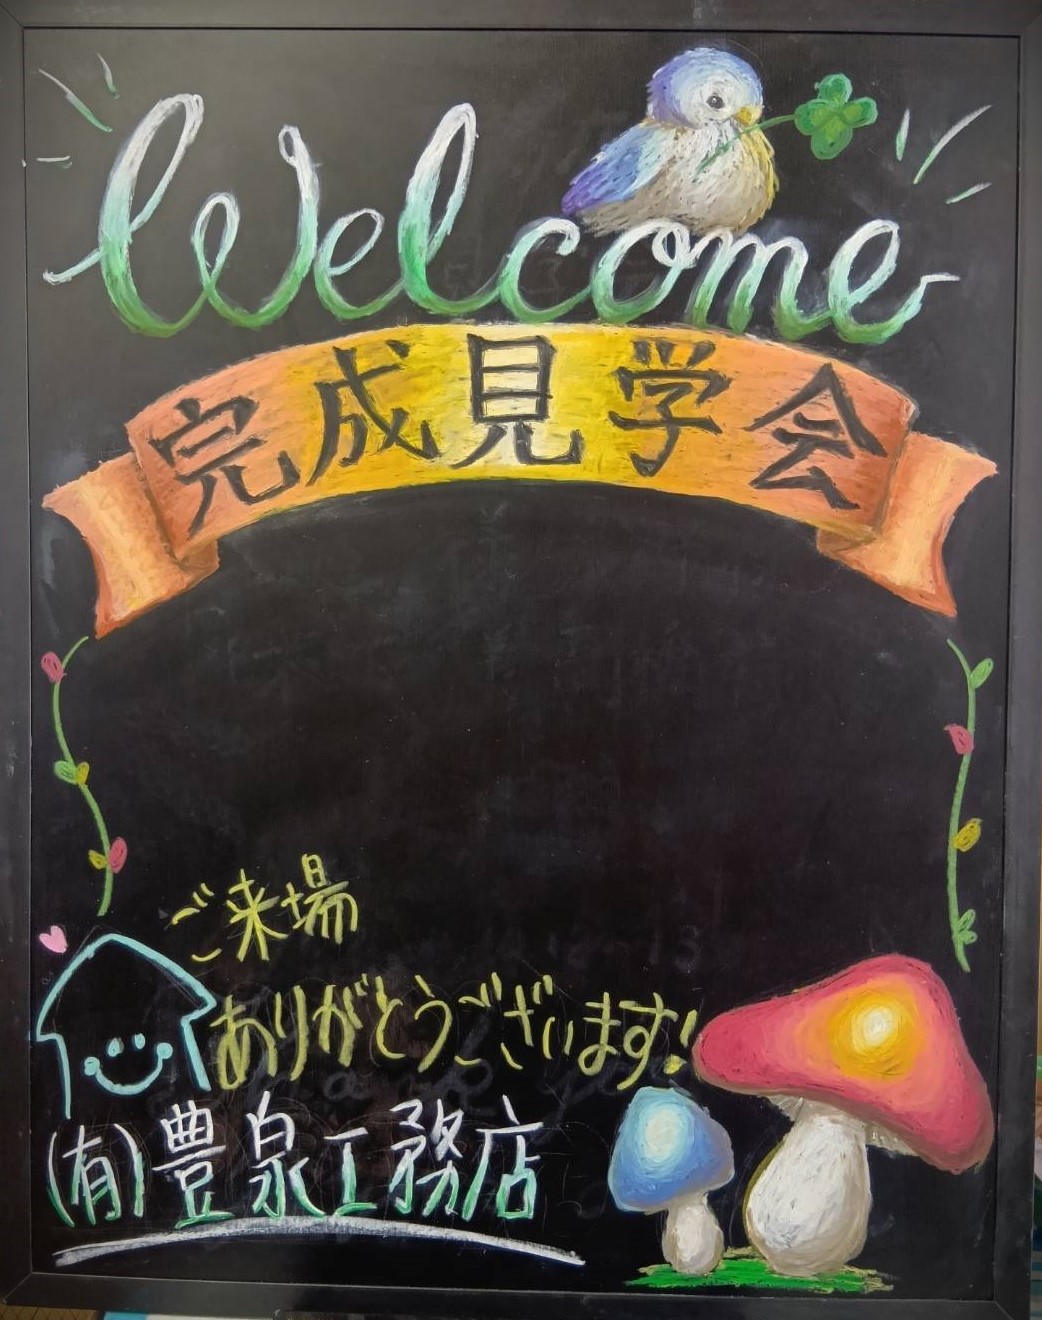 Welcome
完成見学会
ご来場
ありがとうございます!
(有)豊泉工務店